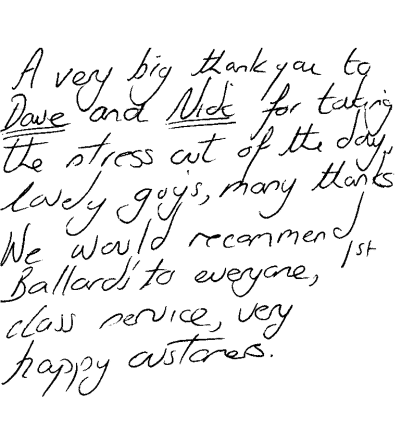 A very big thank you to
Dave and Nick for taking
the stress out of the day,
lovely guys, many thanks
We would recommend
Ballards to everyone, 1st
class service, very
happy customers.